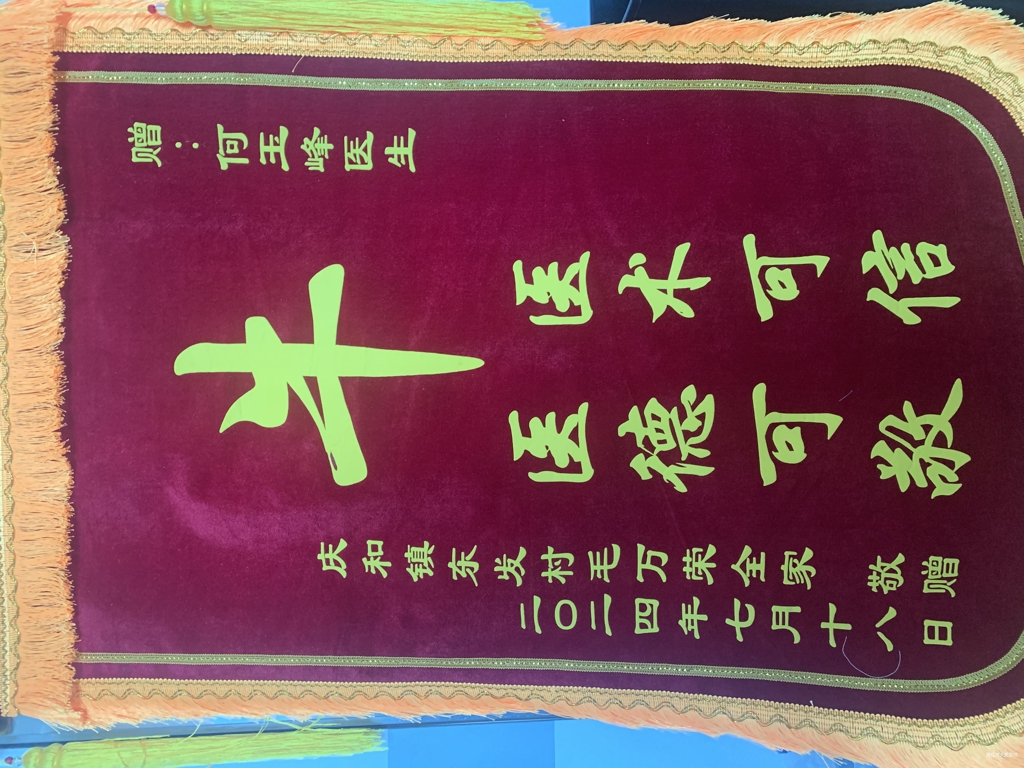 赠：何玉峰医生
牛
医术可信
医德可敬
庆和镇东发村毛万荣全家 敬赠
二〇二四年七月十八日